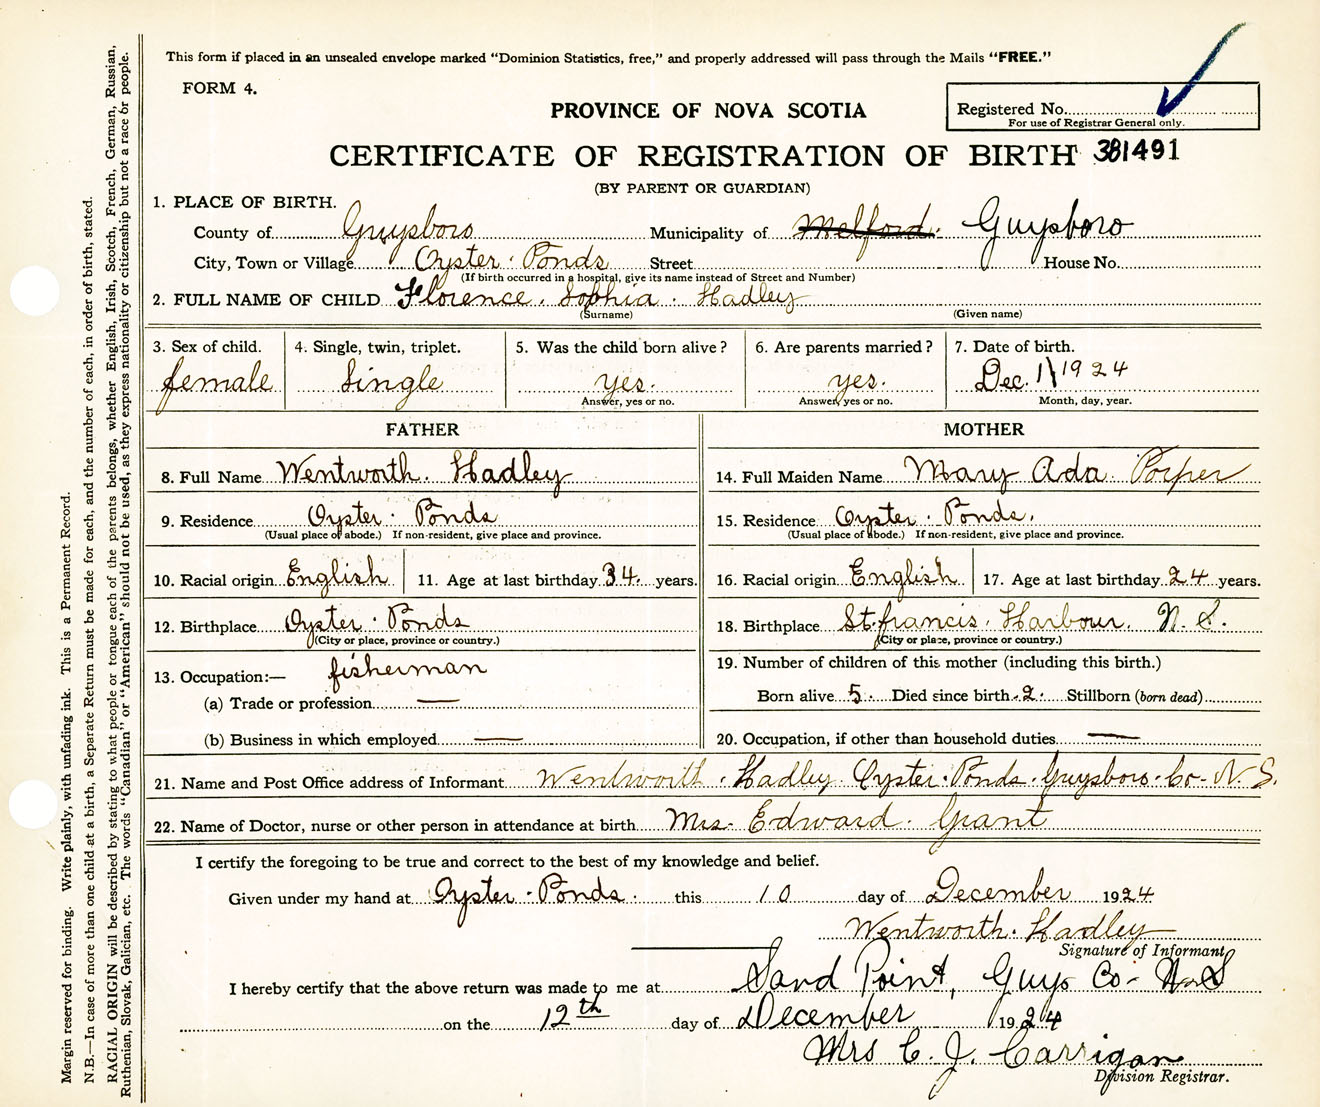 This form if placed in an unsealed envelope marked "Dominion Statistics, free," and properly addressed will pass through the Mails "FREE."
FORM 4.
PROVINCE OF NOVA SCOTIA
Registered No.
For use of Registrar General only.
CERTIFICATE OF REGISTRATION OF BIRTH 381491
(BY PARENT OR GUARDIAN)
1. PLACE OF BIRTH.
County of Guysboro Municipality of Melford Guysboro
City, Town or Village Oyster Ponds Street House No.
(If birth occurred in a hospital, give its name instead of Street and Number)
2. FULL NAME OF CHILD Florence Sophia Hadley
(Surname) (Given name)
3. Sex of child. 4. Single, twin, triplet. 5. Was the child born alive? 6. Are parents married? 7. Date of birth.
female Single yes. yes. Dec. 1 1924
Answer, yes or no. Answer, yes or no. Month, day, year.
FATHER MOTHER
8. Full Name Wentworth Hadley 14. Full Maiden Name Mary Ada Porper
9. Residence Oyster Ponds 15. Residence Oyster Ponds.
(Usual place of abode.) If non-resident, give place and province. (Usual place of abode.) If non-resident, give place and province.
10. Racial origin English 11. Age at last birthday 34 years. 16. Racial origin English 17. Age at last birthday 24 years.
12. Birthplace Oyster Ponds 18. Birthplace St. francis Harbour. N. S.
(City or place, province or country.) (City or place, province or country.)
13. Occupation:— fisherman 19. Number of children of this mother (including this birth.)
(a) Trade or profession — Born alive 5 Died since birth 2 Stillborn (born dead)
(b) Business in which employed — 20. Occupation, if other than household duties —
21. Name and Post Office address of Informant Wentworth Hadley Oyster Ponds Guysboro Co- N. S.
22. Name of Doctor, nurse or other person in attendance at birth Mrs- Edward Grant
I certify the foregoing to be true and correct to the best of my knowledge and belief.
Given under my hand at Oyster Ponds this 10 day of December 1924
Wentworth Hadley
Signature of Informant
I hereby certify that the above return was made to me at Sand Point, Guys Co- N.S
on the 12th day of December 1924
Mrs C. J. Carrigan
Division Registrar.
Margin reserved for binding. Write plainly, with unfading ink. This is a Permanent Record.
N.B.—In case of more than one child at a birth, a Separate Return must be made for each, and the number of each, in order of birth, stated.
RACIAL ORIGIN will be described by stating to what people or tongue each of the parents belongs, whether English, Irish, Scotch, French, German, Russian,
Ruthenian, Slovak, Galician, etc. The words "Canadian" or "American" should not be used, as they express nationality or citizenship but not a race or people.